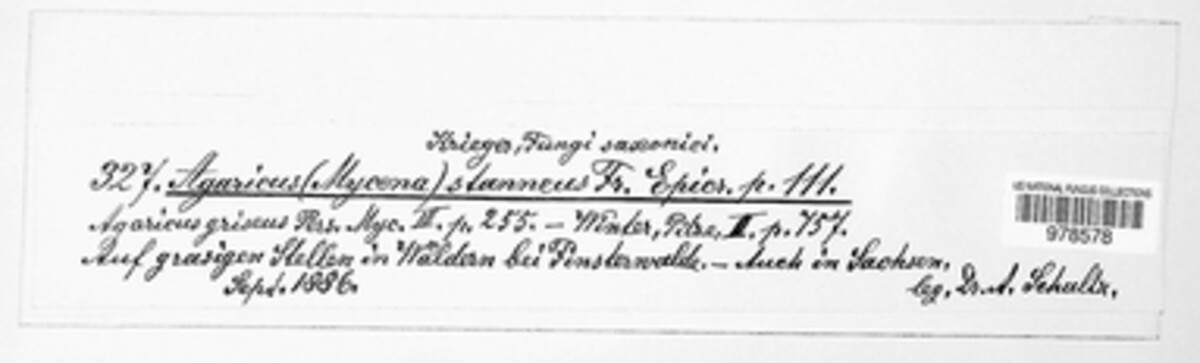 Krieger, Fungi saxonici.
327. Agaricus (Mycena) stanneus Fr. Epicr. p. 111.
Agaricus griseus Pers. Myc. III. p. 255. — Winter, Pilze, II. p. 757.
Auf grasigen Stellen in Wäldern bei Finsterwalde. — Auch in Sachsen.
Sept. 1886.
leg. Dr. A. Schultz.
US NATIONAL FUNGUS COLLECTIONS
978578